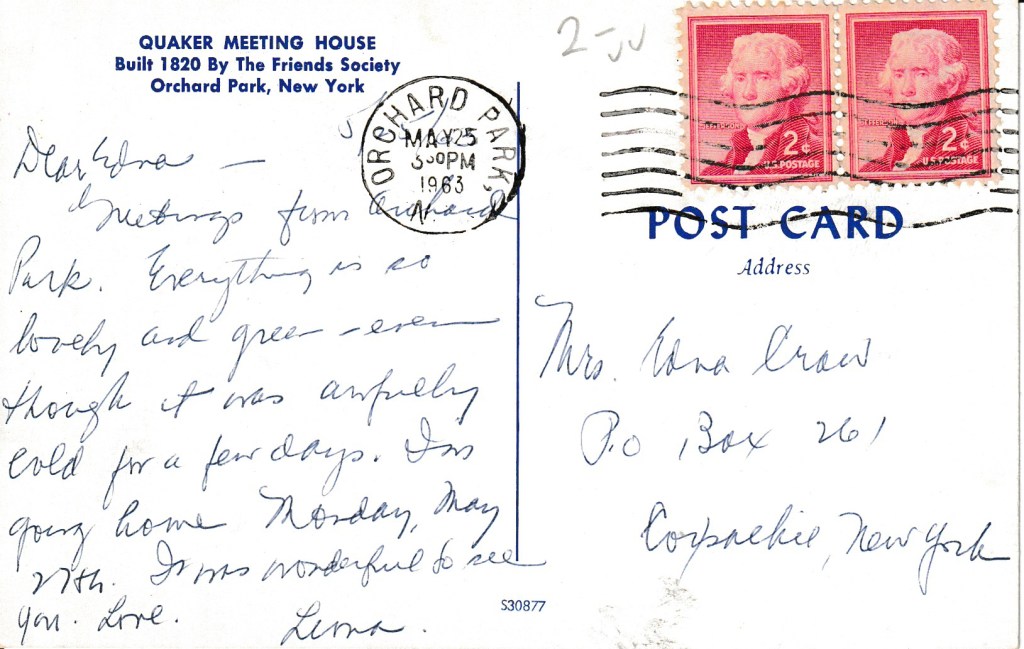 QUAKER MEETING HOUSE
Built 1820 By The Friends Society
Orchard Park, New York
Dear Edna —
Greetings from Orchard
Park. Everything is so
lovely and green - even
though it was awfully
cold for a few days. I'm
going home Monday, May
27th. It was wonderful to see
you. Love.
Leona.
ORCHARD PARK,
MAY 25
3 30 PM
1963
N.
2-
JEFFERSON
2¢
U.S. POSTAGE
JEFFERSON
2¢
U.S. POSTAGE
POST CARD
Address
Mrs. Edna Craw
P.O Box 261
New York
S30877